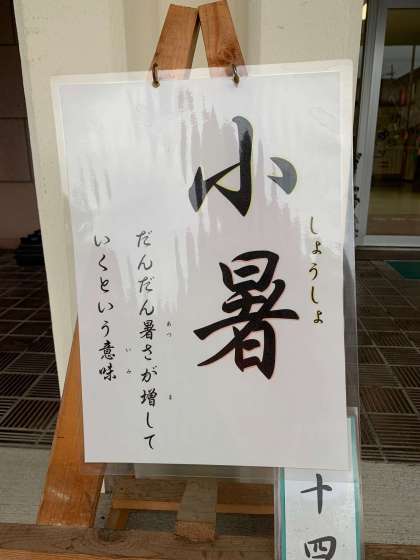 小暑
しょうしょ
だんだん暑さが増して
あつ
ま
いくという意味
いみ
十四